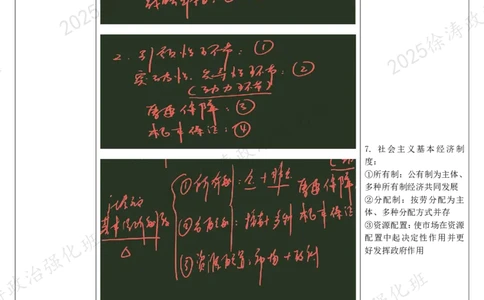 2. 引领性环节：①
②
（动力环节）
重要保障：③
根本保证：④
①所有制：公+非公
②分配制：按劳+多种
③资源配置：市场+政府
重要保障
根本保证
7. 社会主义基本经济制
度：
①所有制：公有制为主体、
多种所有制经济共同发展
②分配制：按劳分配为主
体、多种分配方式并存
③资源配置：使市场在资源
配置中起决定性作用并更
好发挥政府作用
2025徐涛政
2025徐涛
政治强化班
化班